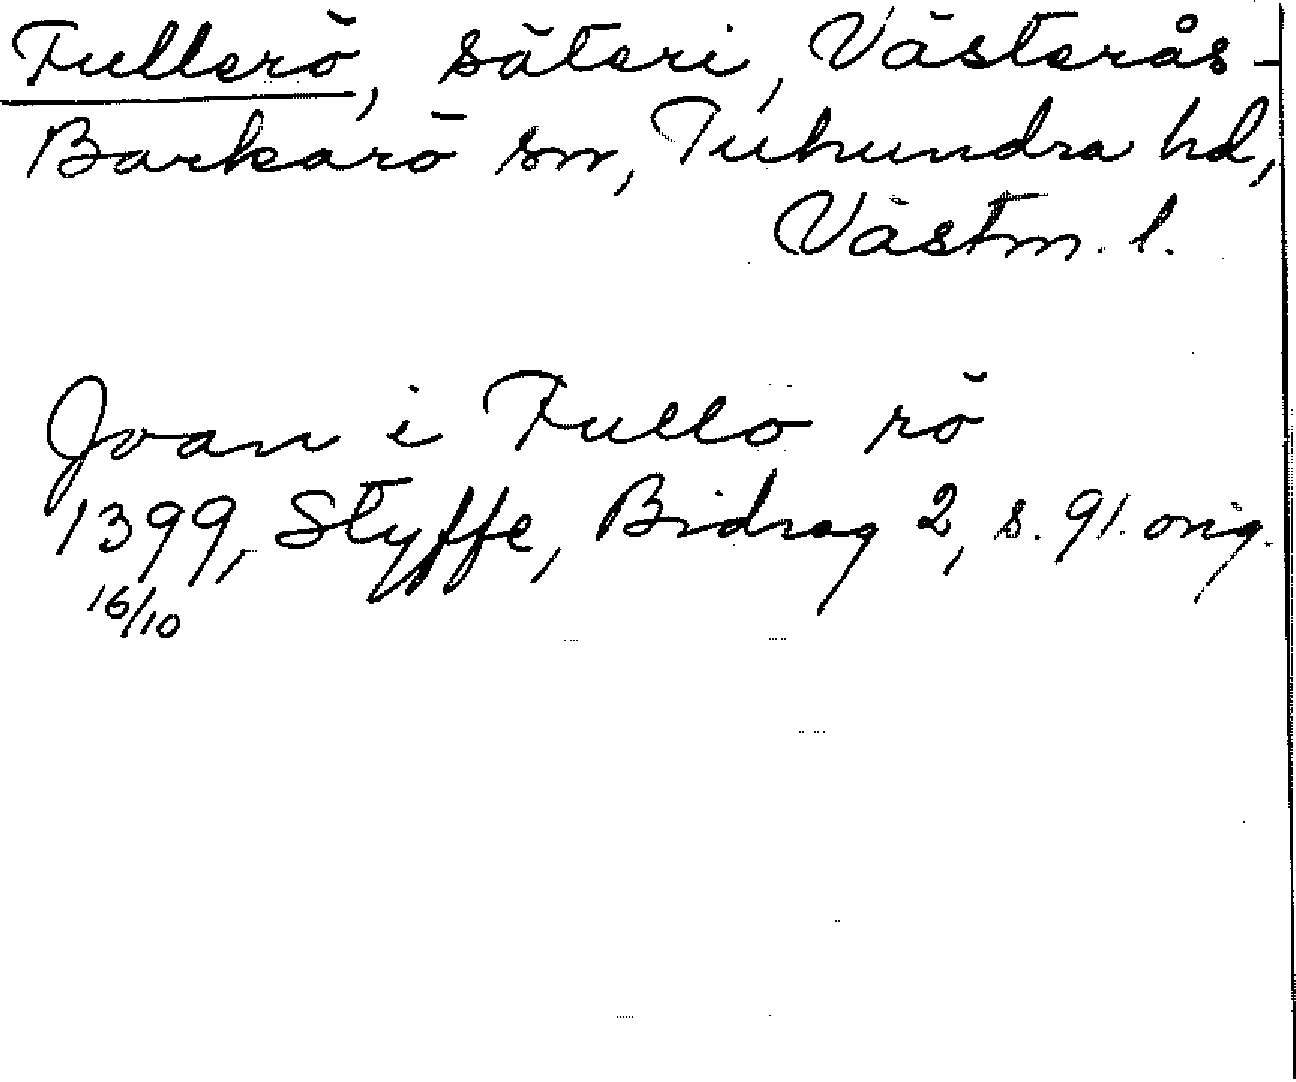 Fullerö, säteri, Västerås-
Barkarö sn, Tuhundra hd,
Västm. l.
Joan i Fullo rö
1399, Styffe, Bidrag 2, s. 91. orig.
16/10